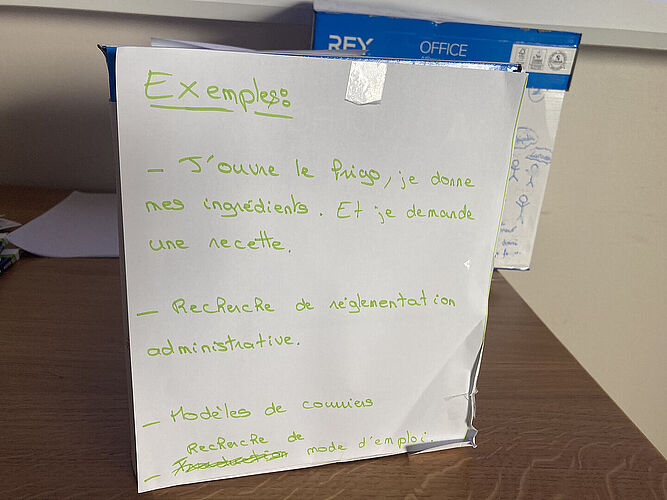 REY
OFFICE
Exemples:
- J'ouvre le frigo, je donne
mes ingrédients. Et je demande
une recette.
- Recherche de réglementation
administrative.
- Modèles de courriers
- Recherche de mode d'emploi.